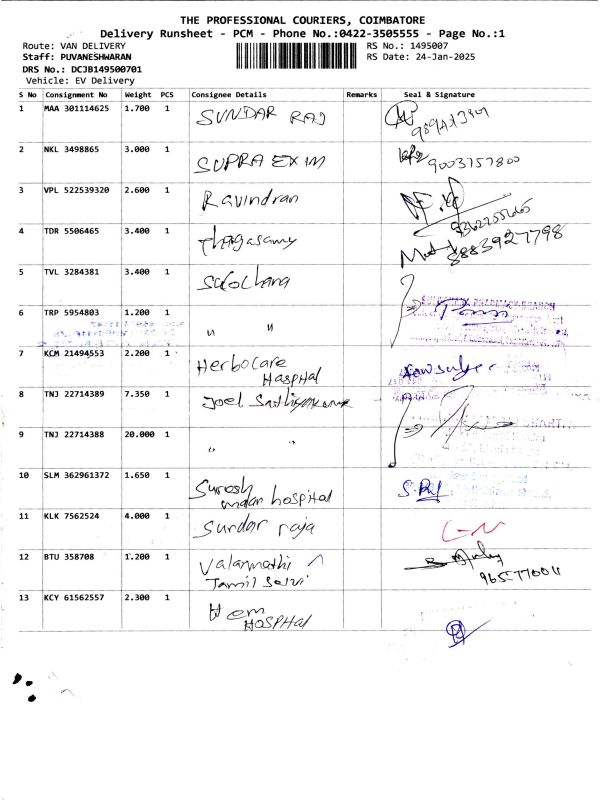 THE PROFESSIONAL COURIERS, COIMBATORE
Delivery Runsheet - PCM - Phone No.:0422-3505555 - Page No.:1
Route: VAN DELIVERY RS No.: 1495007
Staff: PUVANESHWARAN RS Date: 24-Jan-2025
DRS No.: DCJB149500701
Vehicle: EV Delivery
S No Consignment No Weight PCS Consignee Details Remarks Seal & Signature
1 MAA 301114625 1.700 1 SUNDAR RAJ
2 NKL 3498865 3.000 1 SUPRA EXIM 9003757800
3 VPL 522539320 2.600 1 Ravindran
4 TDR 5506465 3.400 1 Thagasamy 8883927798
5 TVL 3284381 3.400 1
6 TRP 5954803 1.200 1 " "
7 KCM 21494553 2.200 1 Herbocare
HaspHal
8 TNJ 22714389 7.350 1 Joel
9 TNJ 22714388 20.000 1 " "
10 SLM 362961372 1.650 1 Suresh
hospital
11 KLK 7562524 4.000 1 Sundar raja
12 BTU 358708 1.200 1 Valarmathi
Tamil Selvi
13 KCY 61562557 2.300 1 Hem
HOSPHal